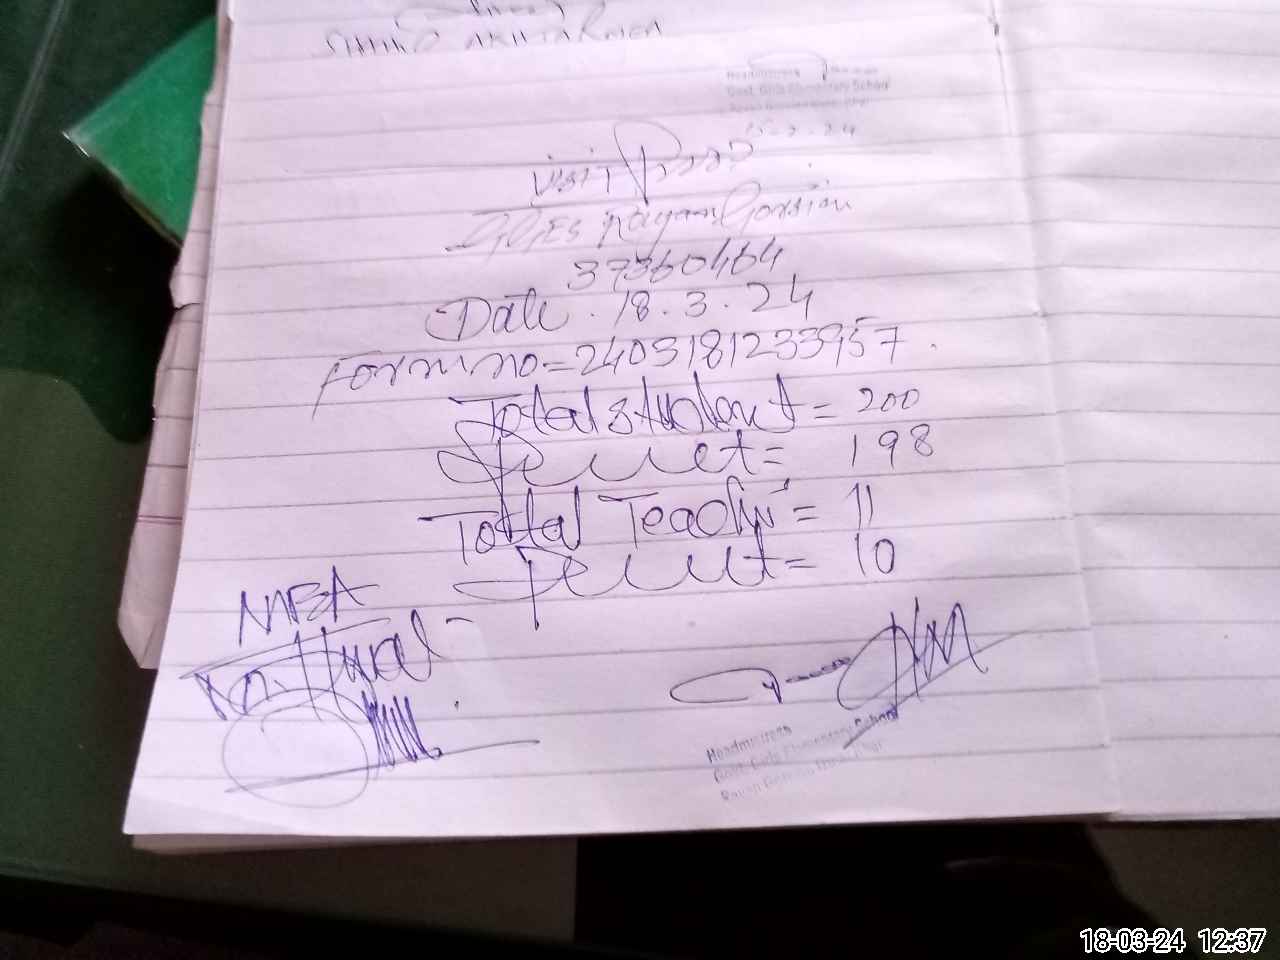 Headmistress
Govt. Girls Elementary School
15-2-24
Visit Proof
GGES
37360464
Date . 18.3.24
Form no = 2403181233957.
Total student = 200
Peruet = 198
Total Teacher = 11
Peruet = 10
MEA
Headmistress
Govt. Girls Elementary School
18-03-24 12:37